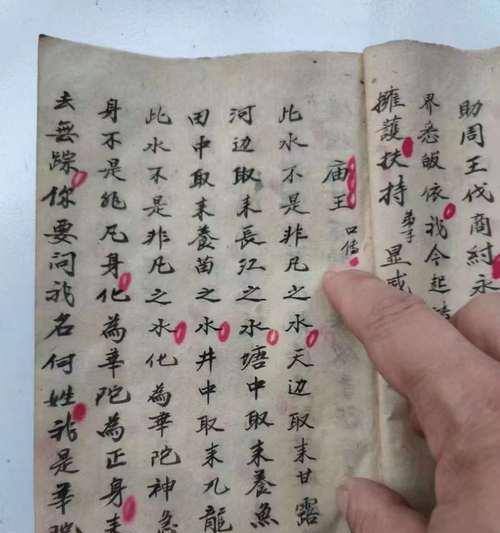 助周王伐商紂永
界悉皈依我今起
擁護扶持弟子显威
庙王口传
此水不是非凡之水天边取来甘露
河边取来長江之水塘中取来養魚
田中取来養苗之水井中取来九龍
此水不是非凡之水化為華陀神急
身不是非凡身化為華陀為正身来
去無踪你要问我名何姓我是華陀